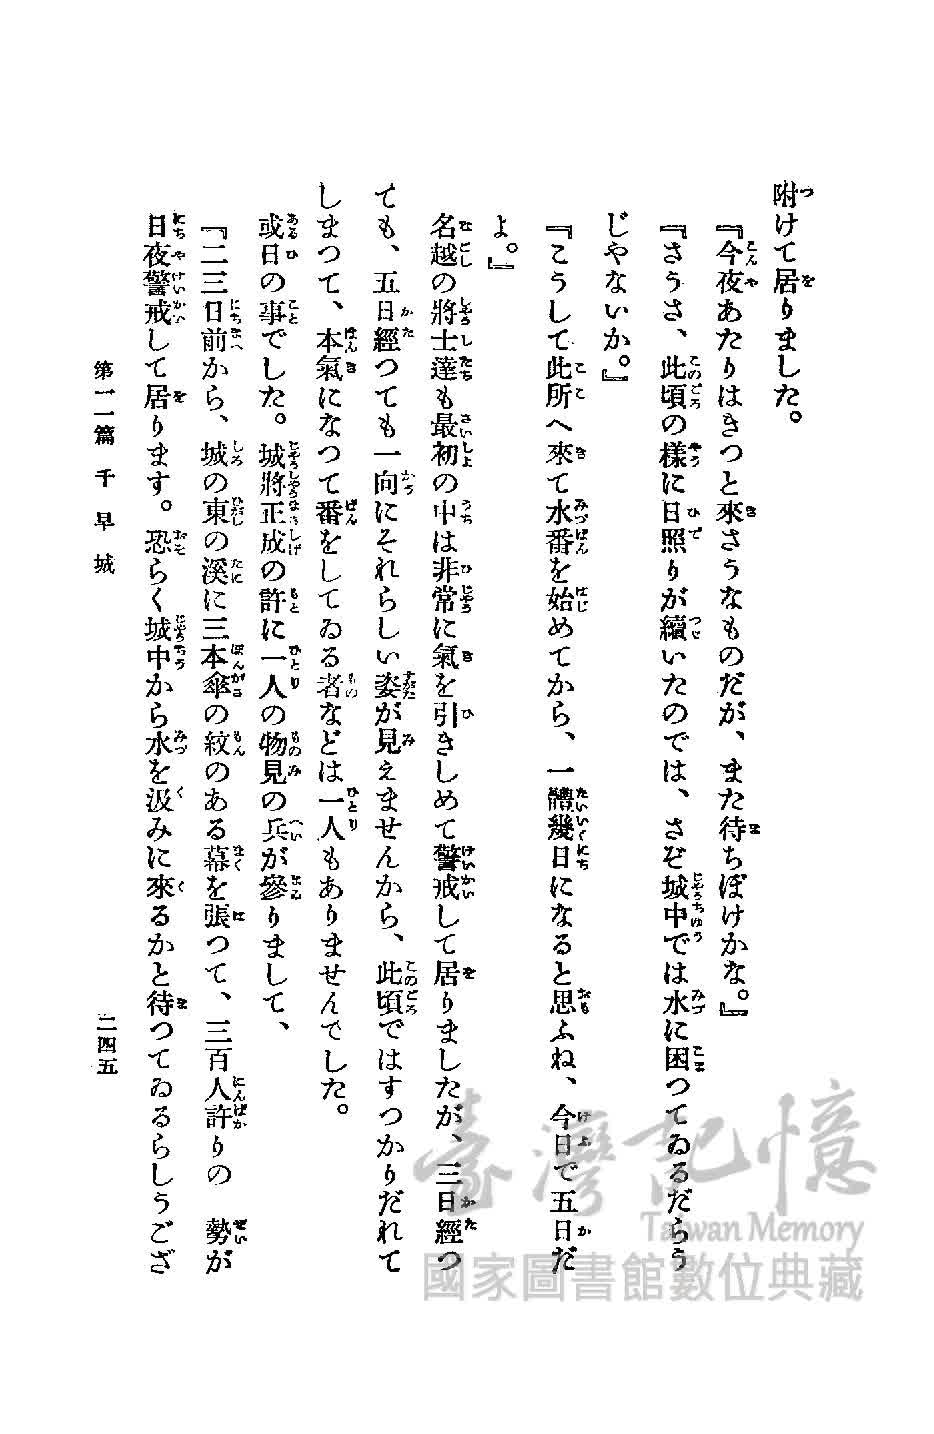 附けて居りました。
『今夜あたりはきつと來さうなものだが、また待ちぼけかな。』
『さうさ、此頃の樣に日照りが續いたのでは、さぞ城中では水に困つてゐるだらう
じやないか。』
『こうして此所へ來て水番を始めてから、一體幾日になると思ふね、今日で五日だ
よ。』
名越の將士達も最初の中は非常に氣を引きしめて警戒して居りましたが、三日經つ
ても、五日經つても一向にそれらしい姿が見えませんから、此頃ではすつかりだれて
しまつて、本氣になつて番をしてゐる者などは一人もありませんでした。
或日の事でした。城將正成の許に一人の物見の兵が參りまして、
『二三日前から、城の東の溪に三本傘の紋のある幕を張つて、三百人許りの　勢が
日夜警戒して居ります。恐らく城中から水を汲みに來るかと待つてゐるらしうござ
第二篇 千早城
二四五
臺灣記憶
Taiwan Memory
國家圖書館數位典藏